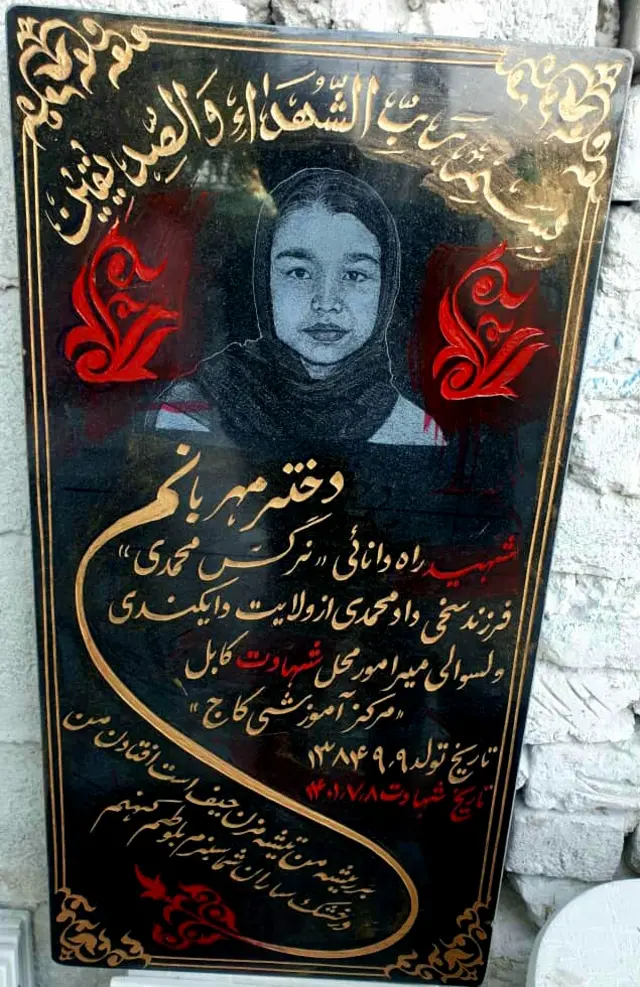 بسم رب الشهداء والصدیقین
دختر مهربانم
شهید راه دانائی «نرگس محمدی»
فرزند سخی داد محمدی از ولایت دایکندی
ولسوالی میرامور محل شهادت کابل
«مرکز آموزشی کاج»
تاریخ تولد ۱۳۸۴٫۹٫۹
تاریخ شهادت ۱۴۰۱٫۷٫۸
به ریشه من تیشه مزن حیف است افتادن من
در خشک ساران شما سبزم بلوطم کهنم